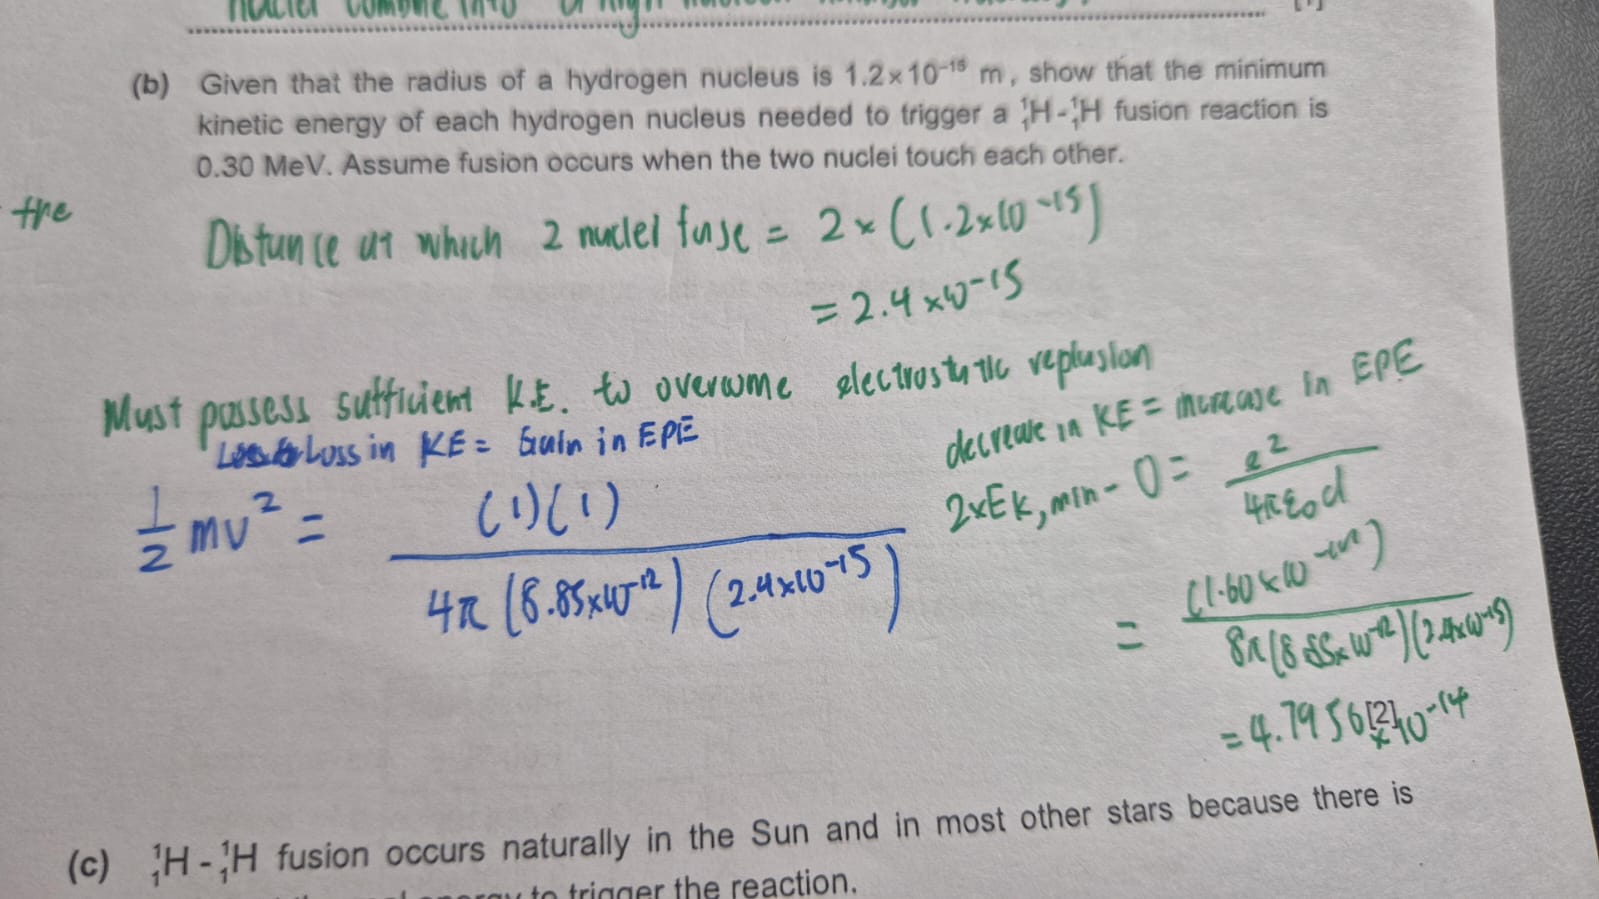 nuclei combine into a high
[1]
(b) Given that the radius of a hydrogen nucleus is 1.2×10⁻¹⁵ m, show that the minimum
kinetic energy of each hydrogen nucleus needed to trigger a ¹₁H-¹₁H fusion reaction is
0.30 MeV. Assume fusion occurs when the two nuclei touch each other.
the
Distance at which 2 nuclei fuse = 2 × (1.2×10⁻¹⁵)
= 2.4 ×10⁻¹⁵
Must possess sufficient K.E. to overwme electrostatic replusion
Loss in KE = Gain in EPE
½ mv² = (1)(1) / 4π (8.85×10⁻¹²) (2.4×10⁻¹⁵)
decrease in KE = increase in EPE
2×Ek,min - 0 = e² / 4πε₀d
= (1.60×10⁻¹⁹) / 8π(8.85×10⁻¹²)(2.4×10⁻¹⁵)
= 4.7956 ×10⁻¹⁴
[2]
(c) ¹₁H - ¹₁H fusion occurs naturally in the Sun and in most other stars because there is
energy to trigger the reaction.